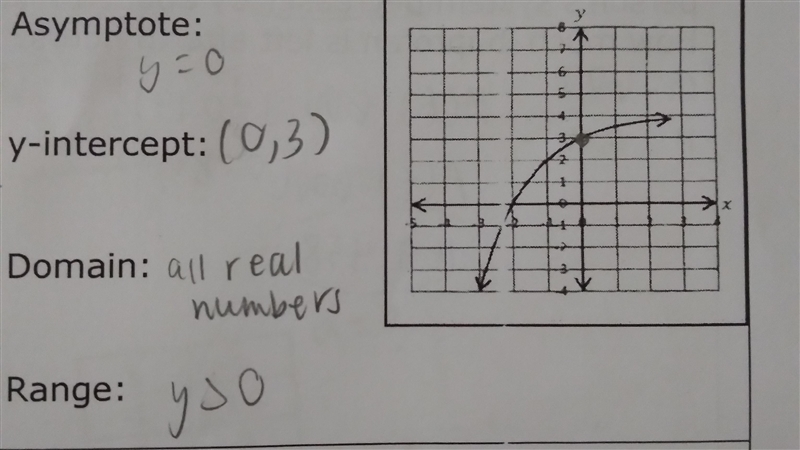 Asymptote:
y = 0
y-intercept: (0,3)
Domain: all real
numbers
Range: y > 0
y
8
7
6
5
4
3
2
1
0
x
-5 -4 -3 -2 -1 0 1 2 3 4
-1
-2
3
4